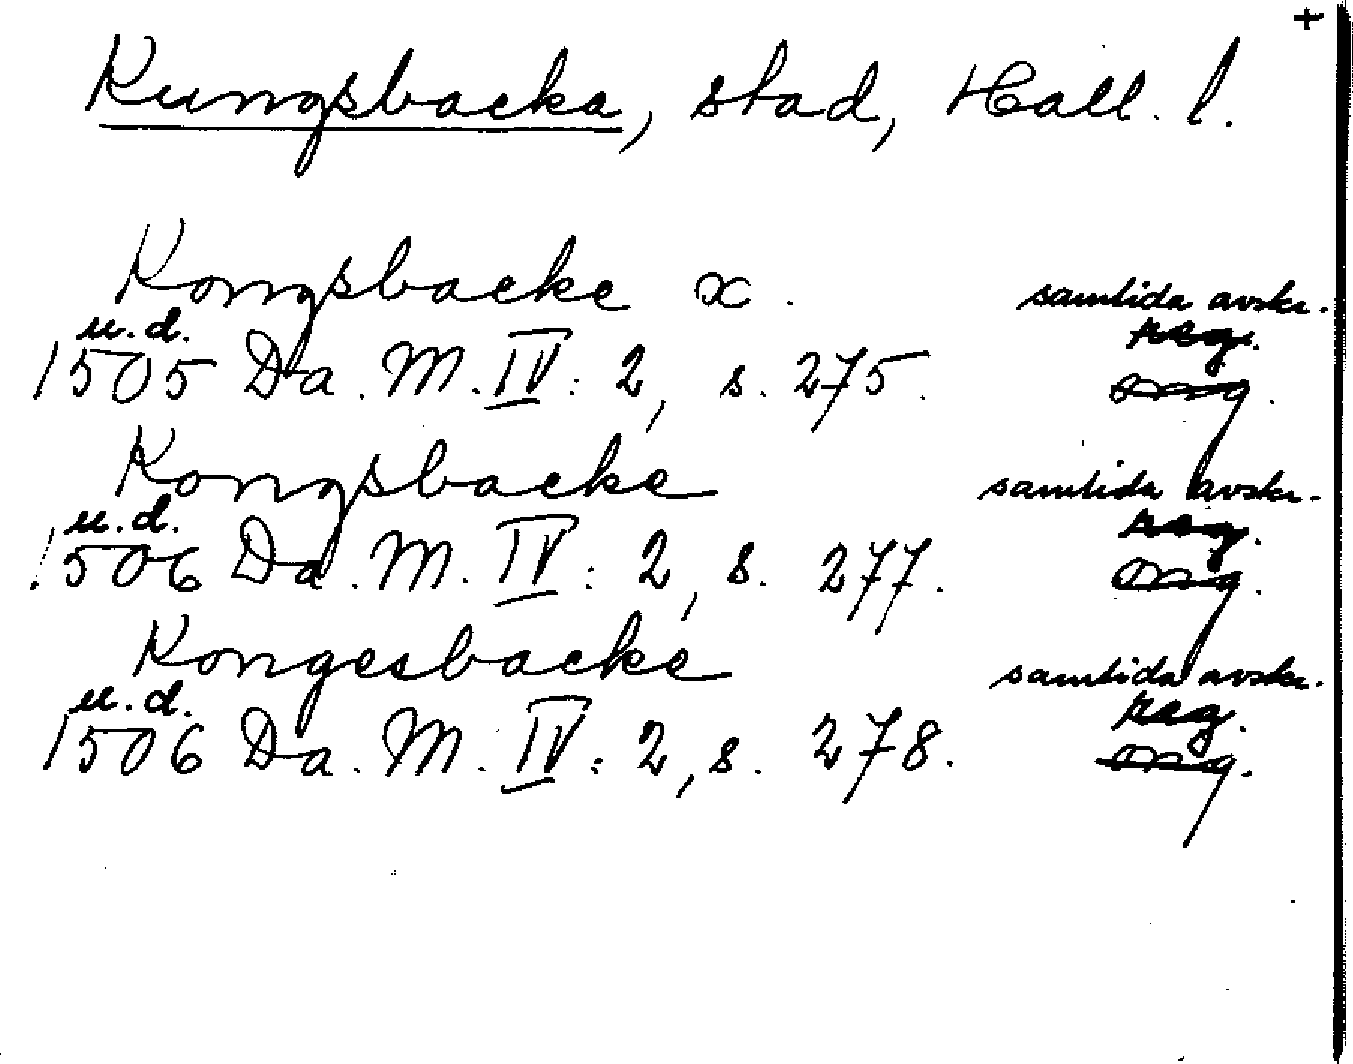 +
Kungsbacka, stad, Hall. l.
Kongsbacke x. samtida avskr.
u.d. reg.
1505 Da. M. IV: 2, s. 275. orig.
Kongsbacke samtida avskr.
u.d. reg.
1506 Da. M. IV: 2, s. 277. orig.
Kongesbacke samtida avskr.
u.d. reg.
1506 Da. M. IV: 2, s. 278. orig.